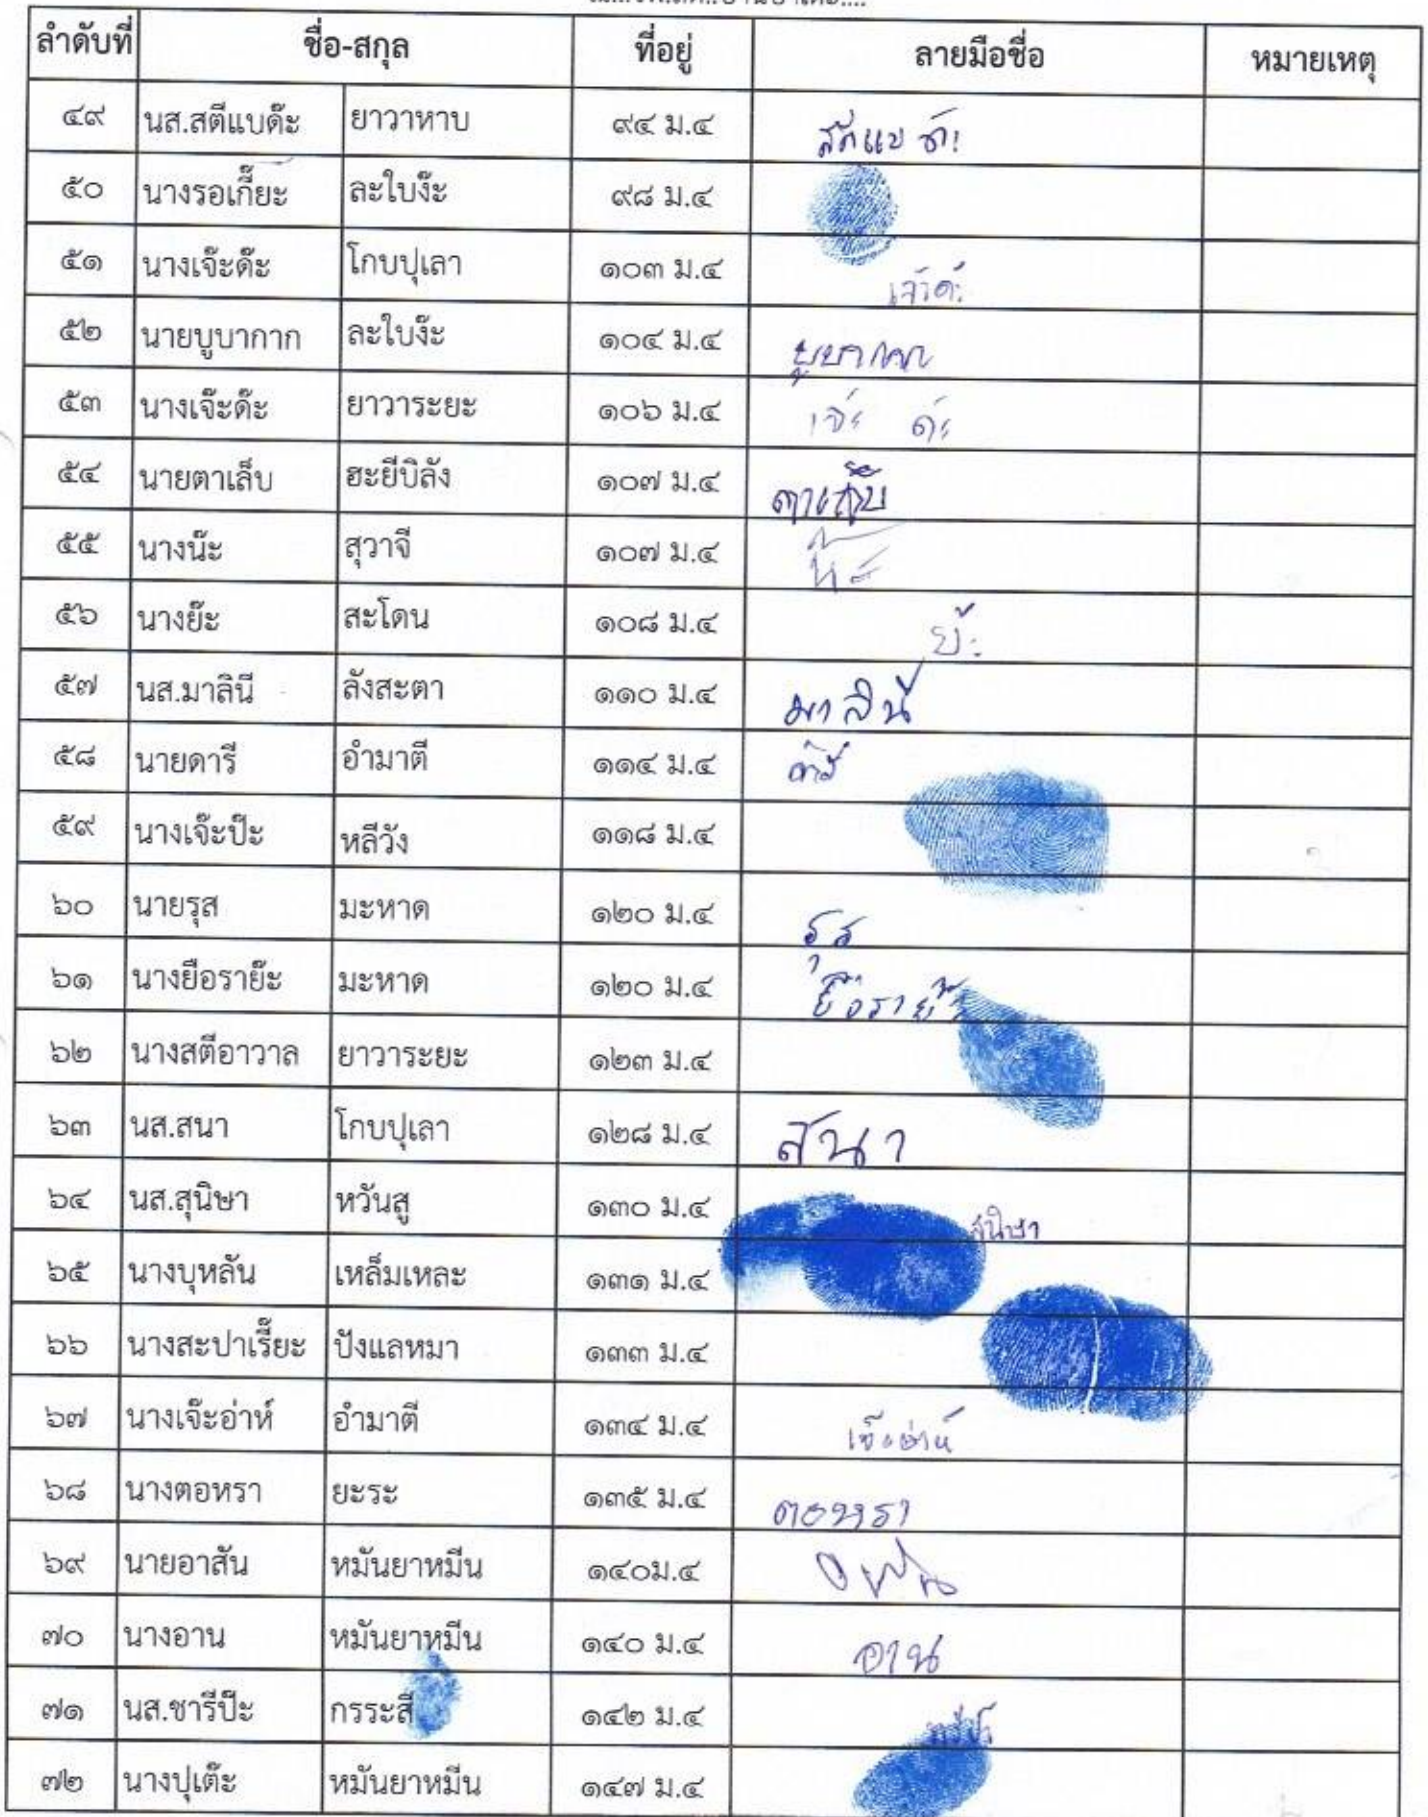 ลำดับที่ ชื่อ-สกุล ที่อยู่ ลายมือชื่อ หมายเหตุ
๔๙ นส.สตีแบด๊ะ ยาวาหาบ ๙๔ ม.๔ สตีแบด๊ะ
๕๐ นางรอเกี๊ยะ ละใบง๊ะ ๙๘ ม.๔
๕๑ นางเจ๊ะด๊ะ โกบปุเลา ๑๐๓ ม.๔
๕๒ นายบูบากาก ละใบง๊ะ ๑๐๔ ม.๔ บูบากาก
๕๓ นางเจ๊ะด๊ะ ยาวาระยะ ๑๐๖ ม.๔ เจ๊ะ ด๊ะ
๕๔ นายตาเล็บ ฮะยีบิลัง ๑๐๗ ม.๔ ตาเล็บ
๕๕ นางน๊ะ สุวาจี ๑๐๗ ม.๔ น๊ะ
๕๖ นางย๊ะ สะโดน ๑๐๘ ม.๔ ย๊ะ
๕๗ นส.มาลินี ลังสะตา ๑๑๐ ม.๔ มาลินี
๕๘ นายดารี อำมาตี ๑๑๔ ม.๔ ดารี
๕๙ นางเจ๊ะป๊ะ หลีวัง ๑๑๘ ม.๔
๖๐ นายรุส มะหาด ๑๒๐ ม.๔ รุส
๖๑ นางยือราย๊ะ มะหาด ๑๒๐ ม.๔ ยือราย๊ะ
๖๒ นางสตีอาวาล ยาวาระยะ ๑๒๓ ม.๔
๖๓ นส.สนา โกบปุเลา ๑๒๘ ม.๔ สนา
๖๔ นส.สุนิษา หวันสู ๑๓๐ ม.๔ สุนิษา
๖๕ นางบุหลัน เหล็มเหละ ๑๓๑ ม.๔
๖๖ นางสะปาเรี๊ยะ ปังแลหมา ๑๓๓ ม.๔
๖๗ นางเจ๊ะอ่าห์ อำมาตี ๑๓๔ ม.๔ เจ๊ะอ่าห์
๖๘ นางตอหรา ยะระ ๑๓๕ ม.๔ ตอหรา
๖๙ นายอาสัน หมันยาหมีน ๑๔๐ม.๔
๗๐ นางอาน หมันยาหมีน ๑๔๐ ม.๔ อาน
๗๑ นส.ชารีป๊ะ กรระสี ๑๔๒ ม.๔
๗๒ นางปุเต๊ะ หมันยาหมีน ๑๔๗ ม.๔